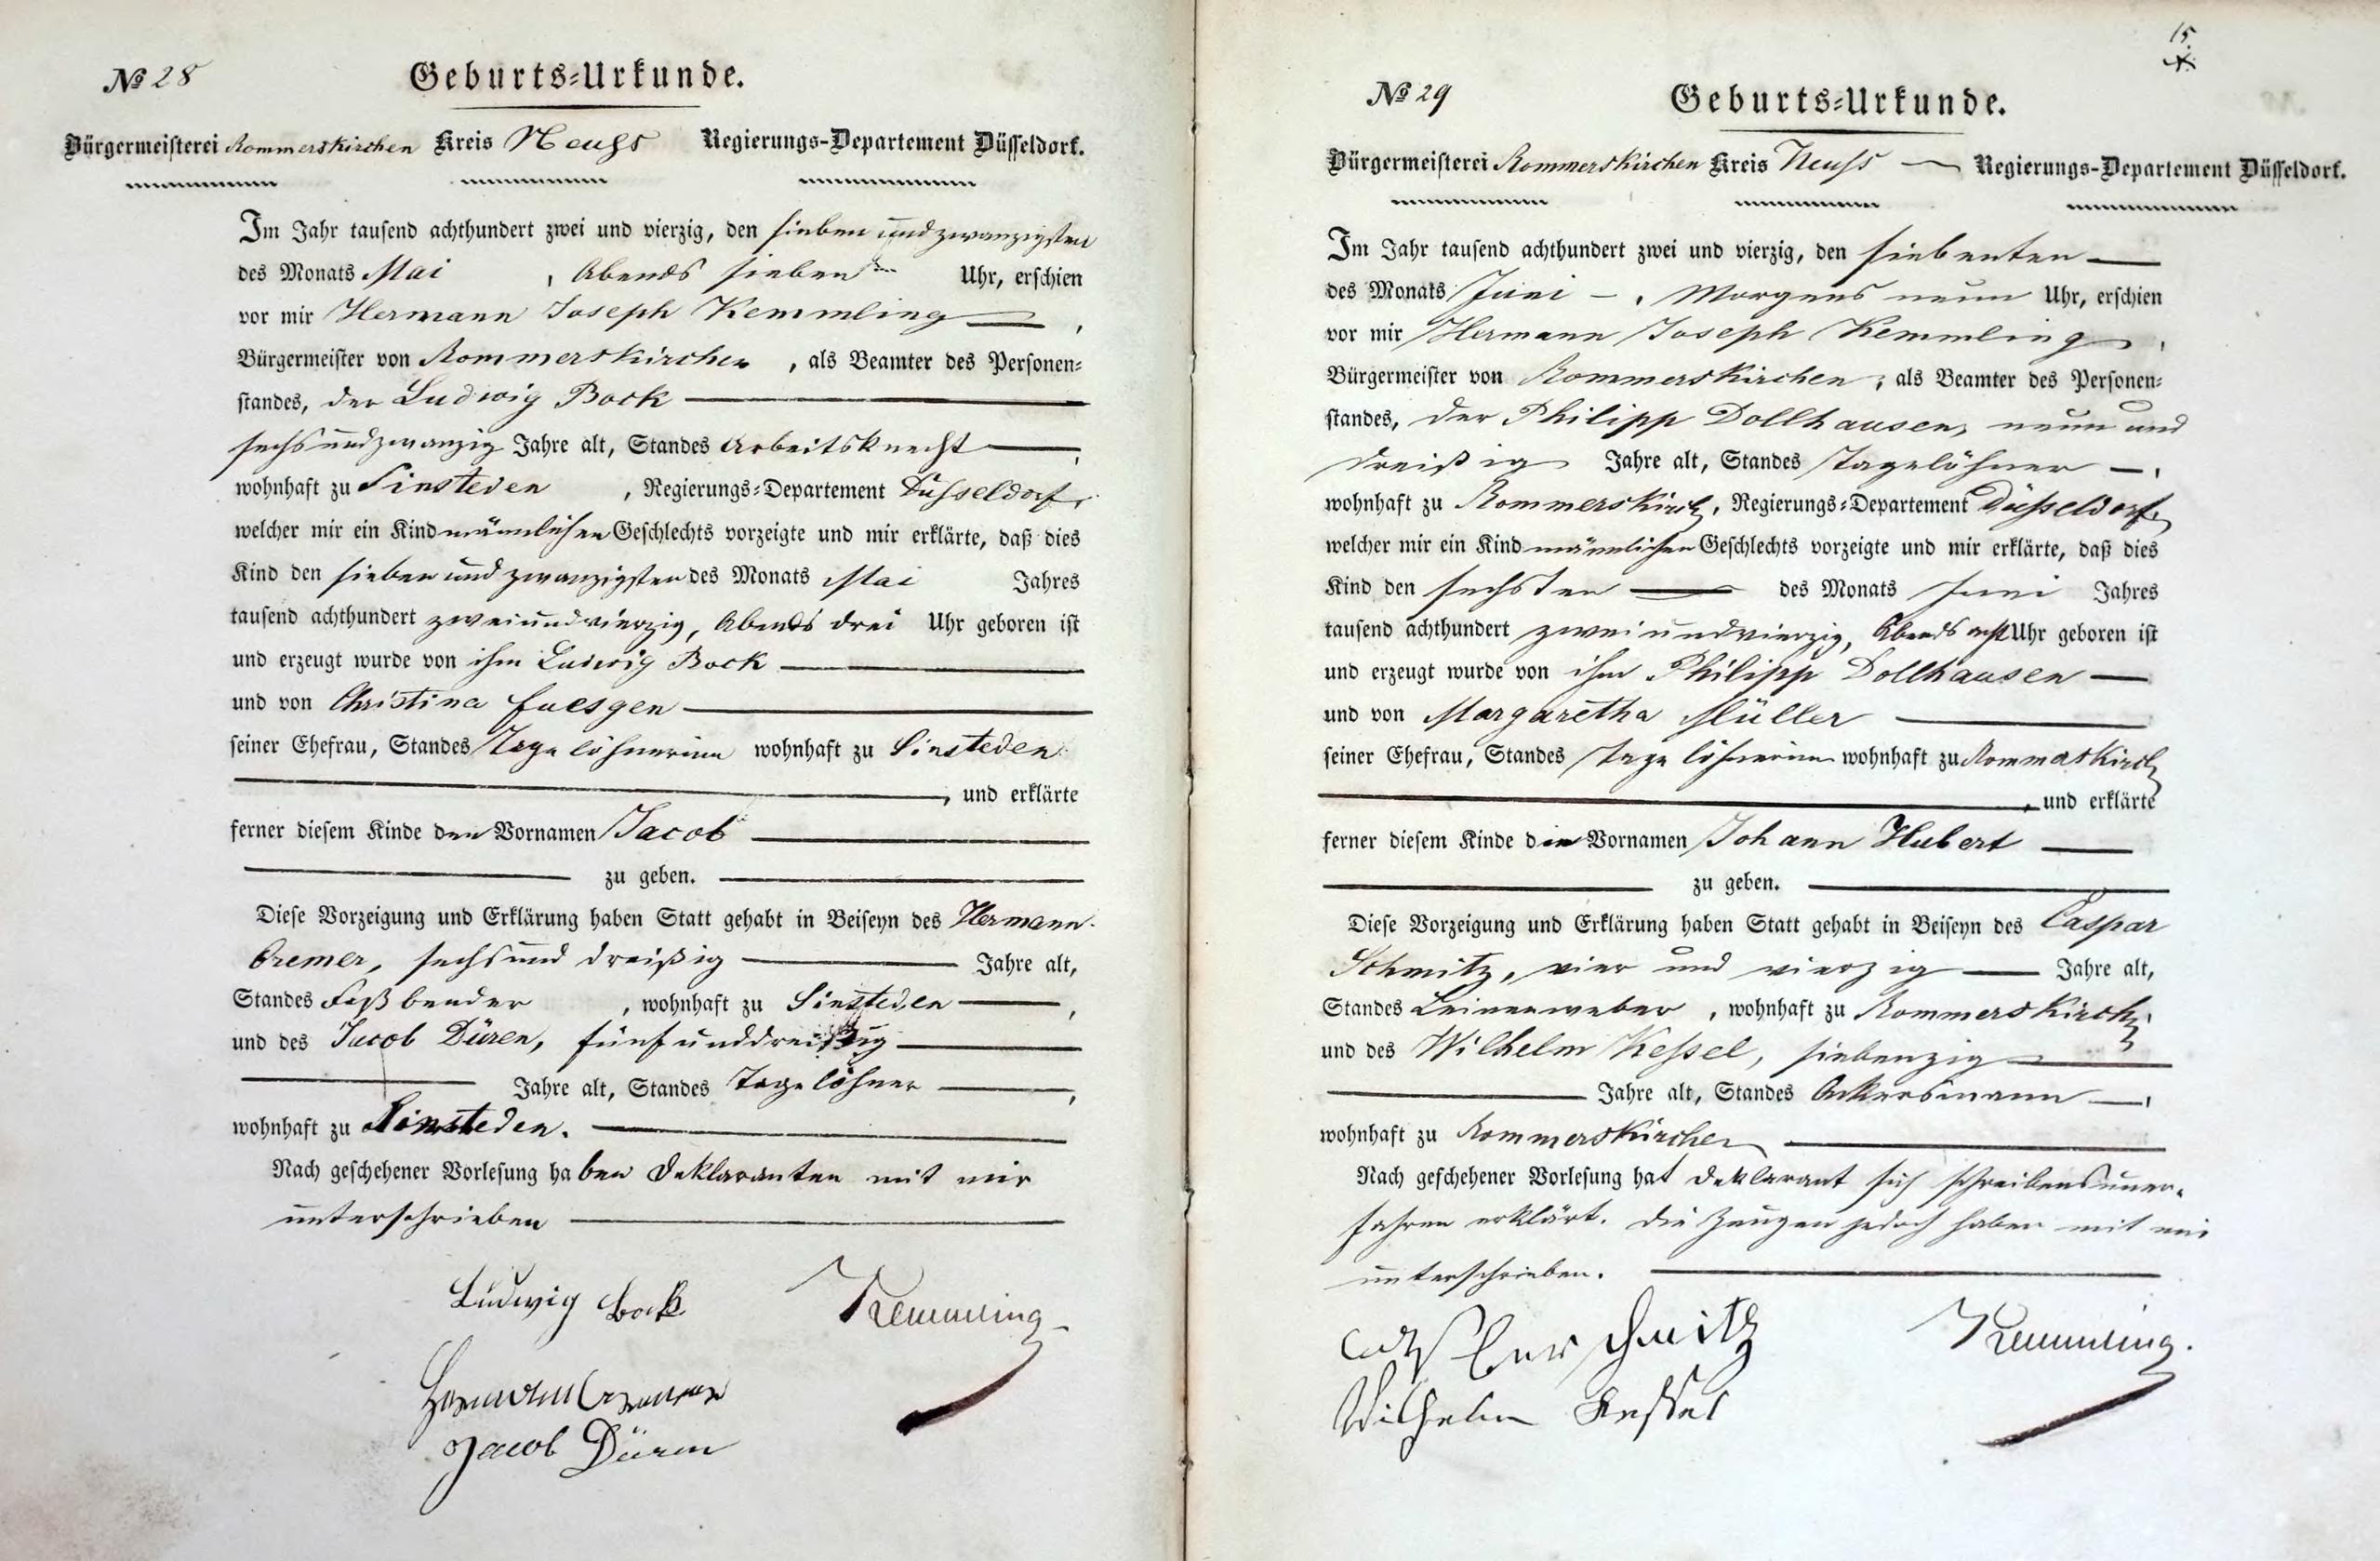 № 28
Geburts=Urkunde.
Bürgermeisterei Rommerskirchen Kreis Neuss Regierungs-Departement Düsseldorf.
Im Jahr tausend achthundert zwei und vierzig, den sieben und zwanzigsten
des Monats Mai , Abends sieben Uhr, erschien
vor mir Hermann Joseph Kemmling ,
Bürgermeister von Rommerskirchen , als Beamter des Personen=
standes, der Ludwig Bock
sechsundzwanzig Jahre alt, Standes Arbeitsknecht ,
wohnhaft zu Sinsteden , Regierungs=Departement Düsseldorf,
welcher mir ein Kind männlichen Geschlechts vorzeigte und mir erklärte, daß dies
Kind den sieben und zwanzigsten des Monats Mai Jahres
tausend achthundert zweiundvierzig, Abends drei Uhr geboren ist
und erzeugt wurde von ihm Ludwig Bock
und von Christina Fuesgen
seiner Ehefrau, Standes Tagelöhnerinn wohnhaft zu Sinsteden
, und erklärte
ferner diesem Kinde den Vornamen Jacob
zu geben.
Diese Vorzeigung und Erklärung haben Statt gehabt in Beiseyn des Hermann
Cremer, sechsund dreißig Jahre alt,
Standes Faßbender , wohnhaft zu Sinsteden ,
und des Jacob Düren, fünfunddreißig
Jahre alt, Standes Tagelöhner ,
wohnhaft zu Sinsteden.
Nach geschehener Vorlesung haben Deklaranten mit mir
unterschrieben
Ludwig Bock Kemmling
Hermann Cremer
Jacob Düren
15.
№ 29
Geburts=Urkunde.
Bürgermeisterei Rommerskirchen Kreis Neuss Regierungs-Departement Düsseldorf.
Im Jahr tausend achthundert zwei und vierzig, den siebenten
des Monats Juni , Morgens neun Uhr, erschien
vor mir Hermann Joseph Kemmling ,
Bürgermeister von Rommerskirchen , als Beamter des Personen=
standes, der Philipp Dollhausen, neun und
dreißig Jahre alt, Standes Tagelöhner ,
wohnhaft zu Rommerskirch, Regierungs=Departement Düsseldorf,
welcher mir ein Kind männlichen Geschlechts vorzeigte und mir erklärte, daß dies
Kind den sechsten des Monats Juni Jahres
tausend achthundert zweiundvierzig, Abends acht Uhr geboren ist
und erzeugt wurde von ihm Philipp Dollhausen
und von Margaretha Müller
seiner Ehefrau, Standes Tagelöhnerinn wohnhaft zu Rommerskirch
, und erklärte
ferner diesem Kinde die Vornamen Johann Hubert
zu geben.
Diese Vorzeigung und Erklärung haben Statt gehabt in Beiseyn des Caspar
Schmitz, vier und vierzig Jahre alt,
Standes Leinenweber , wohnhaft zu Rommerskirch,
und des Wilhelm Kessel, siebenzig
Jahre alt, Standes Ackersmann ,
wohnhaft zu Rommerskirchen
Nach geschehener Vorlesung hat Deklarant sich schreibensuner-
fahren erklärt. Die Zeugen jedoch haben mit mir
unterschrieben.
Schmitz Kemmling.
Wilhelm Kessel